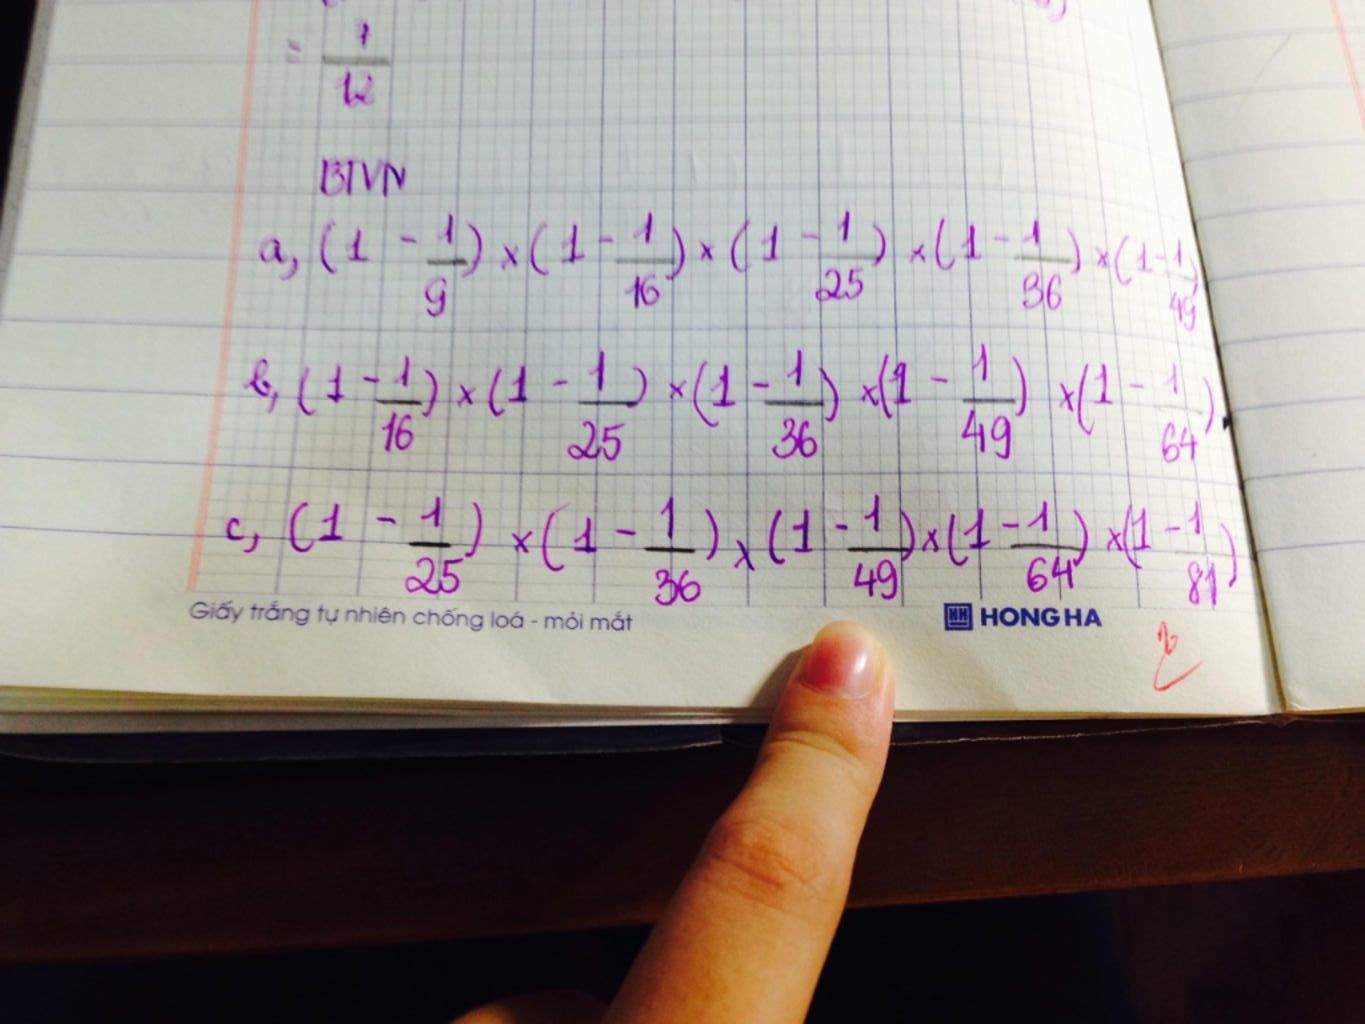 = 7/12
BTVN
a, (1 - 1/9) × (1 - 1/16) × (1 - 1/25) × (1 - 1/36) × (1 - 1/49)
b, (1 - 1/16) × (1 - 1/25) × (1 - 1/36) × (1 - 1/49) × (1 - 1/64)
c, (1 - 1/25) × (1 - 1/36) × (1 - 1/49) × (1 - 1/64) × (1 - 1/81)
Giấy trắng tự nhiên chống loá - mỏi mắt
HH HONG HA